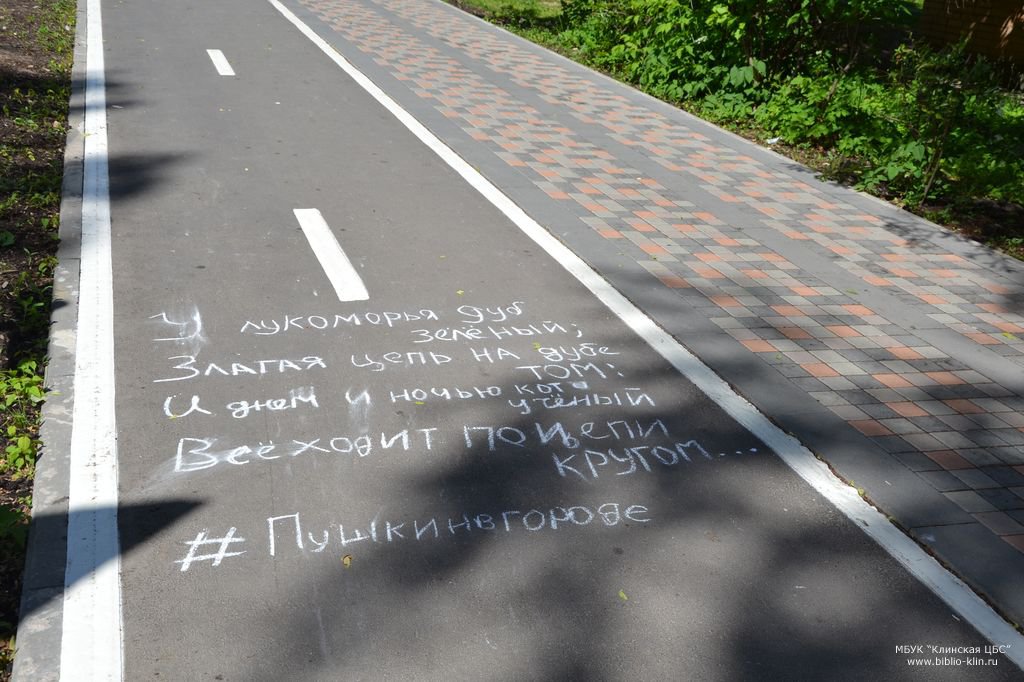 У лукоморья дуб
зелёный;
Златая цепь на дубе
том:
И днём и ночью кот
учёный
Всё ходит по цепи
кругом...
# Пушкинвгороде
МБУК "Клинская ЦБС"
www.biblio-klin.ru